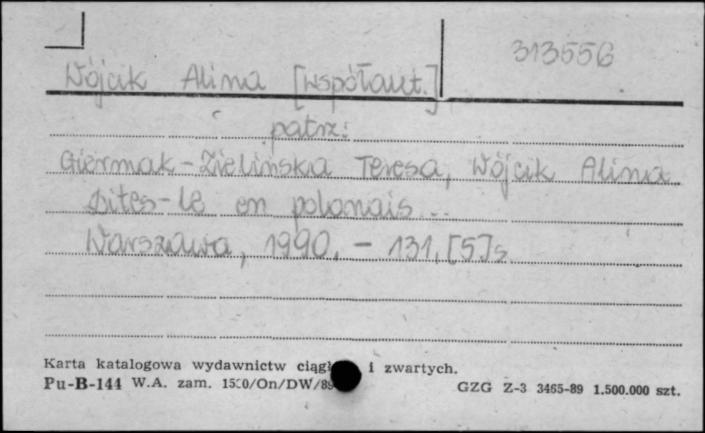 313556
Wójcik Alina [współaut.]
patrz:
Giermak-Zielińska Teresa, Wójcik Alina
Dites-le en polonais...
Warszawa, 1990. - 131, [5]s
Karta katalogowa wydawnictw ciągł i zwartych.
Pu-B-144 W.A. zam. /On/DW/89 GZG Z-3 3465-89 1.500.000 szt.